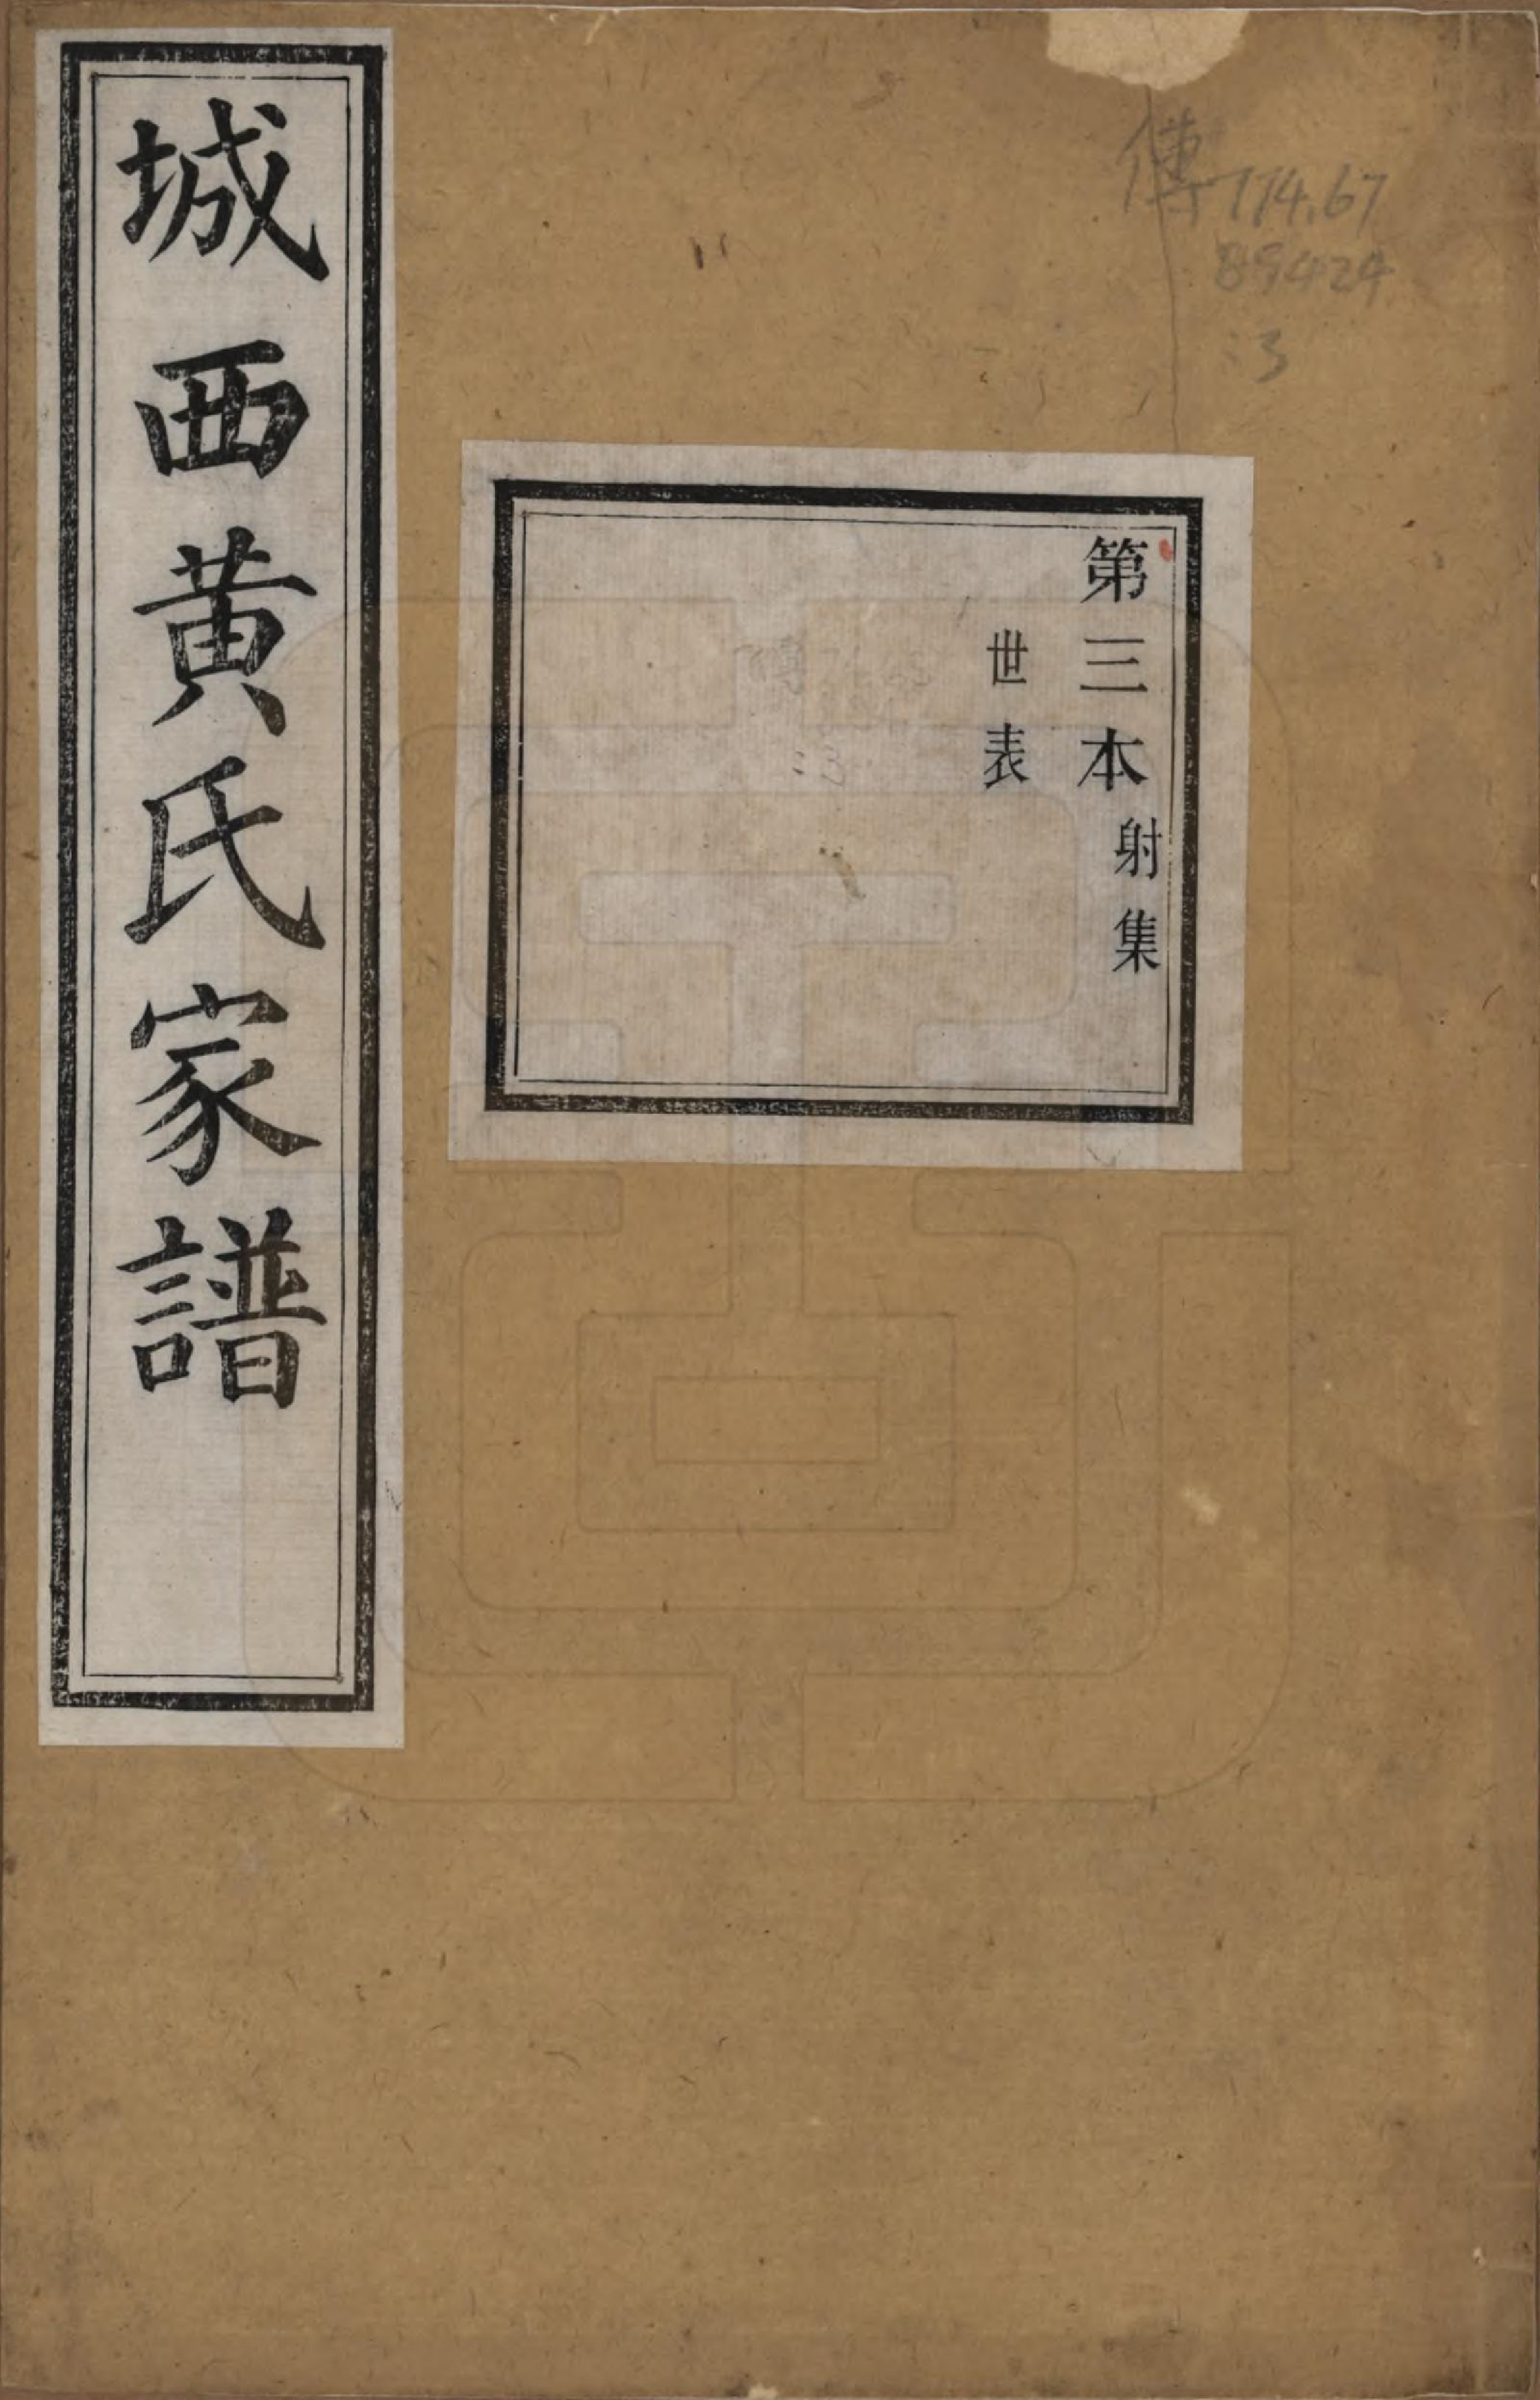 城西黄氏家譜
第三本射集
世表
傳774.67
89424
:3